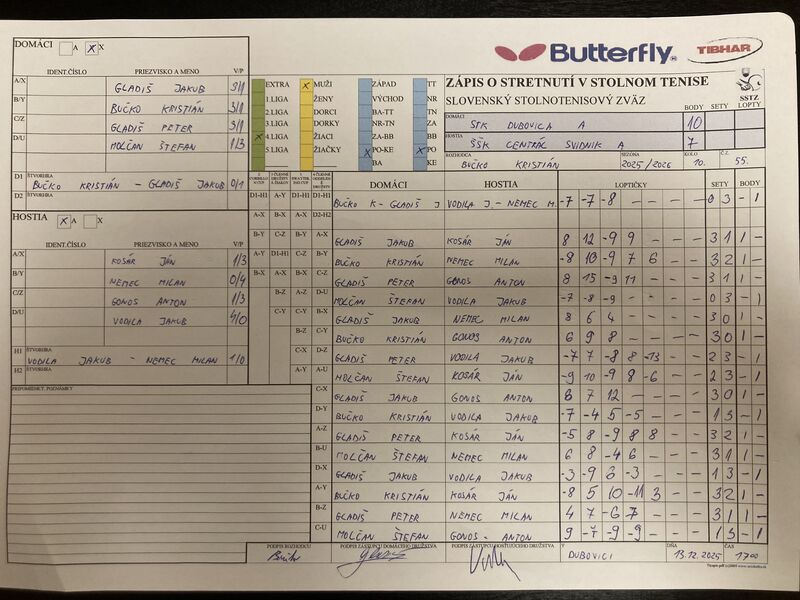 DOMÁCI A X X
IDENT.ČÍSLO PRIEZVISKO A MENO V/P
A/X GLADIŠ JAKUB 3/1
B/Y BUČKO KRISTIÁN 3/1
C/Z GLADIŠ PETER 3/1
D/U MOLČAN ŠTEFAN 1/3
D1 ŠTVORHRA
BUČKO KRISTIÁN - GLADIŠ JAKUB 0/1
D2 ŠTVORHRA
HOSTIA X A X
IDENT.ČÍSLO PRIEZVISKO A MENO V/P
A/X KOSÁR JÁN 1/3
B/Y NEMEC MILAN 0/4
C/Z GONOS ANTON 1/3
D/U VODILA JAKUB 4/0
H1 ŠTVORHRA
VODILA JAKUB - NEMEC MILAN 1/0
H2 ŠTVORHRA
PRIPOMIENKY, POZNÁMKY
EXTRA X MUŽI ZÁPAD TT
1.LIGA ŽENY VÝCHOD NR
2.LIGA DORCI BA-TT TN
3.LIGA DORKY NR-TN ZA
X 4.LIGA ŽIACI ZA-BB BB
5.LIGA ŽIAČKY X PO-KE X PO
BA KE
Butterfly TIBHAR
ZÁPIS O STRETNUTÍ V STOLNOM TENISE
SLOVENSKÝ STOLNOTENISOVÝ ZVÄZ
SSTZ
BODY SETY LOPTY
DOMÁCI
STK DUBOVICA A 10
HOSTIA
ŠŠK CENTRÁL SVIDNÍK A 7
ROZHODCA BUČKO KRISTIÁN SEZÓNA 2025/2026 KOLO 10. Č.Z. 55.
DOMÁCI HOSTIA LOPTIČKY SETY BODY
D1-H1 A-Y D1-H1 D1-H1 BUČKO K - GLADIŠ J VODILA J. - NEMEC M. -7 -7 -8 0 3 - 1
A-X B-X A-X D2-H2
B-Y C-Z B-Y A-X GLADIŠ JAKUB KOSÁR JÁN 8 12 -9 9 - - - 3 1 1 -
A-Y D1-H1 C-Z B-Y BUČKO KRISTIÁN NEMEC MILAN -8 10 -9 7 6 - - 3 2 1 -
B-X A-X B-X C-Z GLADIŠ PETER GONOS ANTON 8 15 -9 11 - - - 3 1 1 -
B-Z A-Z D-U MOLČAN ŠTEFAN VODILA JAKUB -7 -8 -9 - - - - 0 3 - 1
C-Y C-Y B-X GLADIŠ JAKUB NEMEC MILAN 8 6 4 - - - - 3 0 1 -
B-Z C-Y BUČKO KRISTIÁN GONOS ANTON 6 9 8 - - - - 3 0 1 -
C-X D-Z GLADIŠ PETER VODILA JAKUB -7 7 -8 8 -13 - - 2 3 - 1
A-Y A-U MOLČAN ŠTEFAN KOSÁR JÁN -9 10 -9 8 -6 - - 2 3 - 1
C-X GLADIŠ JAKUB GONOS ANTON 6 7 12 - - - - 3 0 1 -
D-Y BUČKO KRISTIÁN VODILA JAKUB -7 -4 5 -5 - - - 1 3 - 1
A-Z GLADIŠ PETER KOSÁR JÁN -5 8 -9 8 8 - - 3 2 1 -
B-U MOLČAN ŠTEFAN NEMEC MILAN 6 8 -4 6 - - - 3 1 1 -
D-X GLADIŠ JAKUB VODILA JAKUB -3 -9 6 -3 - - - 1 3 - 1
A-Y BUČKO KRISTIÁN KOSÁR JÁN -8 5 10 -11 3 - - 3 2 1 -
B-Z GLADIŠ PETER NEMEC MILAN 4 7 -6 7 - - - 3 1 1 -
C-U MOLČAN ŠTEFAN GONOS - ANTON 9 -9 -9 - - - 1 3 - 1
PODPIS ROZHODCU PODPIS ZÁSTUPCU DOMÁCEHO DRUŽSTVA PODPIS ZÁSTUPCU HOSŤUJÚCEHO DRUŽSTVA V DUBOVICI DŇA 13.12.2025 ČAS 17 00